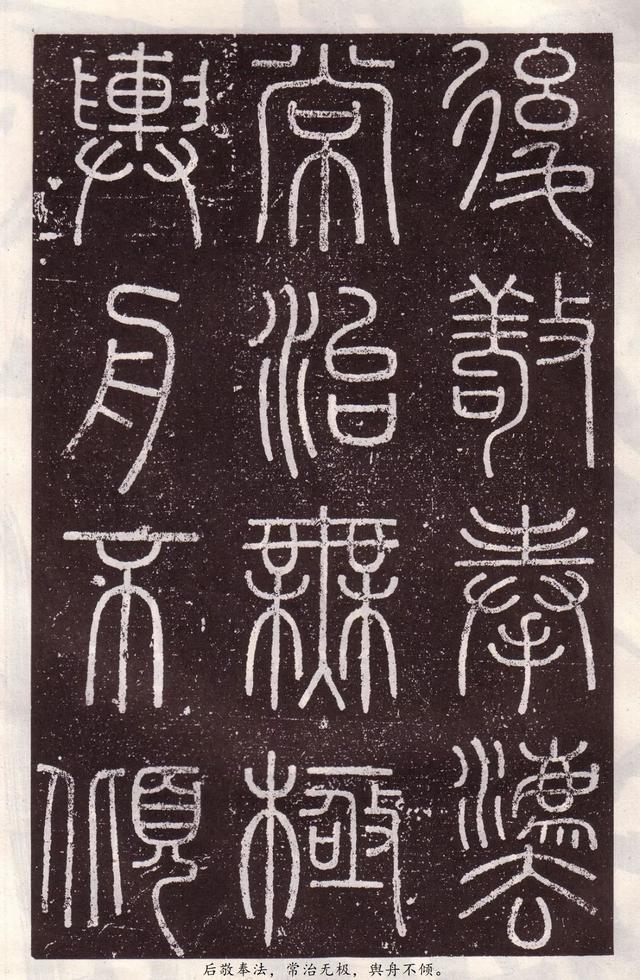 後敬奉灋
常治無極
輿舟不傾
后敬奉法，常治无极，舆舟不倾。